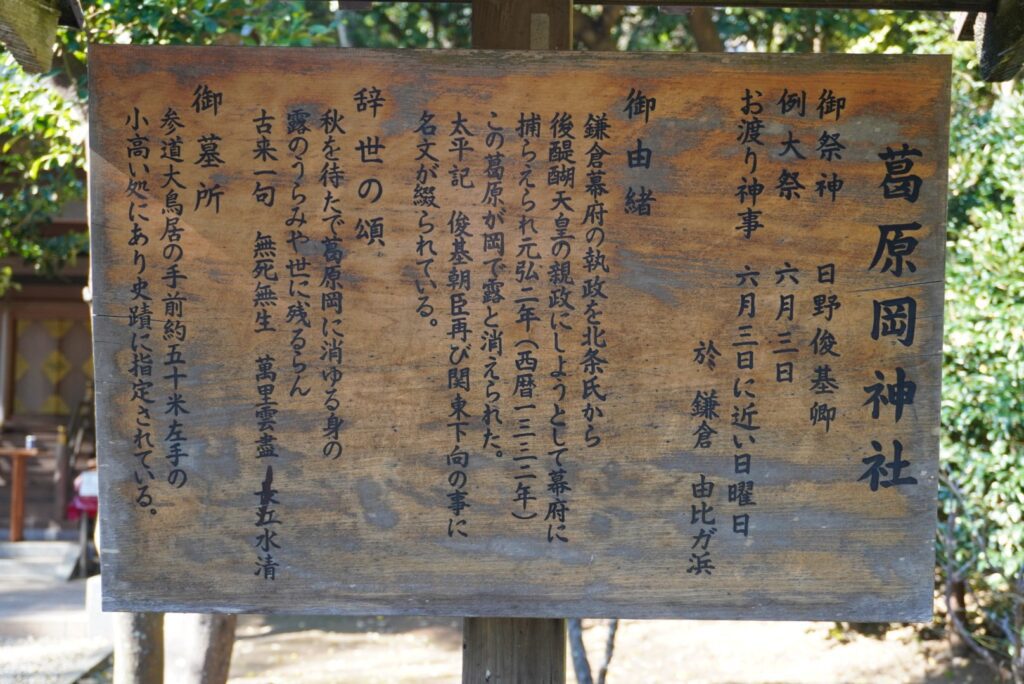 葛原岡神社
御祭神　日野俊基卿
例大祭　六月三日
お渡り神事　六月三日に近い日曜日
於　鎌倉　由比ガ浜
御由緒
鎌倉幕府の執政を北条氏から
後醍醐天皇の親政にしようとして幕府に
捕らえられ元弘二年（西暦一三三二年）
この葛原が岡で露と消えられた。
太平記　俊基朝臣再び関東下向の事に
名文が綴られている。
辞世の頌
秋を待たで葛原岡に消ゆる身の
露のうらみや世に残るらん
古来一句　無死無生　萬里雲盡　水清
御墓所
参道大鳥居の手前約五十米左手の
小高い処にあり史蹟に指定されている。